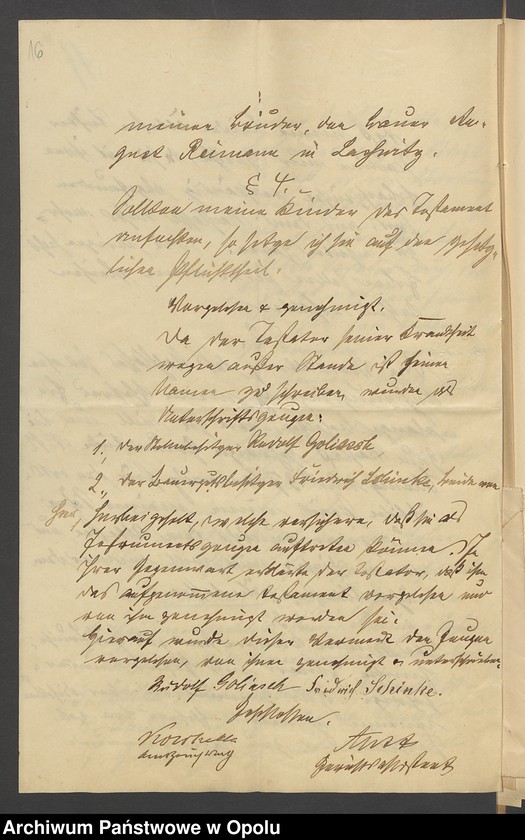 16
meinen Bruder, den Bauer Au-
gust Reimann in Laswitz.
§ 4.
Sollten meine Kinder das Testament
anfechten, so setze ich sie auf den gesetz-
lichen Pflichttheil.
Vorgelesen & genehmigt.
Da der Testator seiner Krankheit
wegen außer Stande ist seinen
Namen zu schreiben, wurden als
Unterschriftszeugen:
1., der Stellenbesitzer Rudolf Goliasch
2., der Bauergutsbesitzer Friedrich Schinke, beide von
hier,
herbeigeholt, welche versichern, daß sie als
Instrumentszeugen auftreten können. In
ihrer Gegenwart erklärte der Testator, daß ihm
das aufgenommene Testament vorgelesen und
von ihm genehmigt worden sei.
Hierauf wurde dieser Vermerk den Zeugen
vorgelesen, von ihnen genehmigt & unterschrieben.
Rudolf Goliasch Friedrich Schinke.
Geschlossen.
Archiwum Państwowe w Opolu